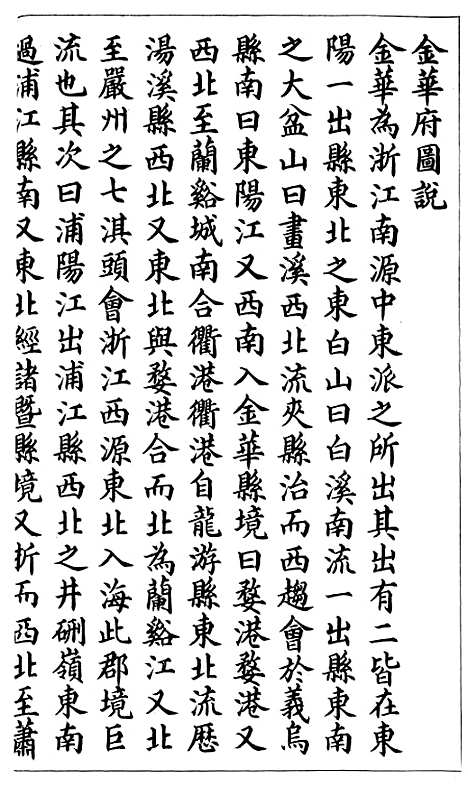 金華府圖說
金華為浙江南源中東派之所出其出有二皆在東
陽一出縣東北之東白山曰白溪南流一出縣東南
之大盆山曰畫溪西北流夾縣治而西趨會於義烏
縣南曰東陽江又西南入金華縣境曰婺港婺港又
西北至蘭谿城南合衢港衢港自龍游縣東北流歴
湯溪縣西北又東北與婺港合而北為蘭谿江又北
至嚴州之七淇頭會浙江西源東北入海此郡境巨
流也其次曰浦陽江出浦江縣西北之井硎嶺東南
過浦江縣南又東北經諸暨縣境又折而西北至蕭